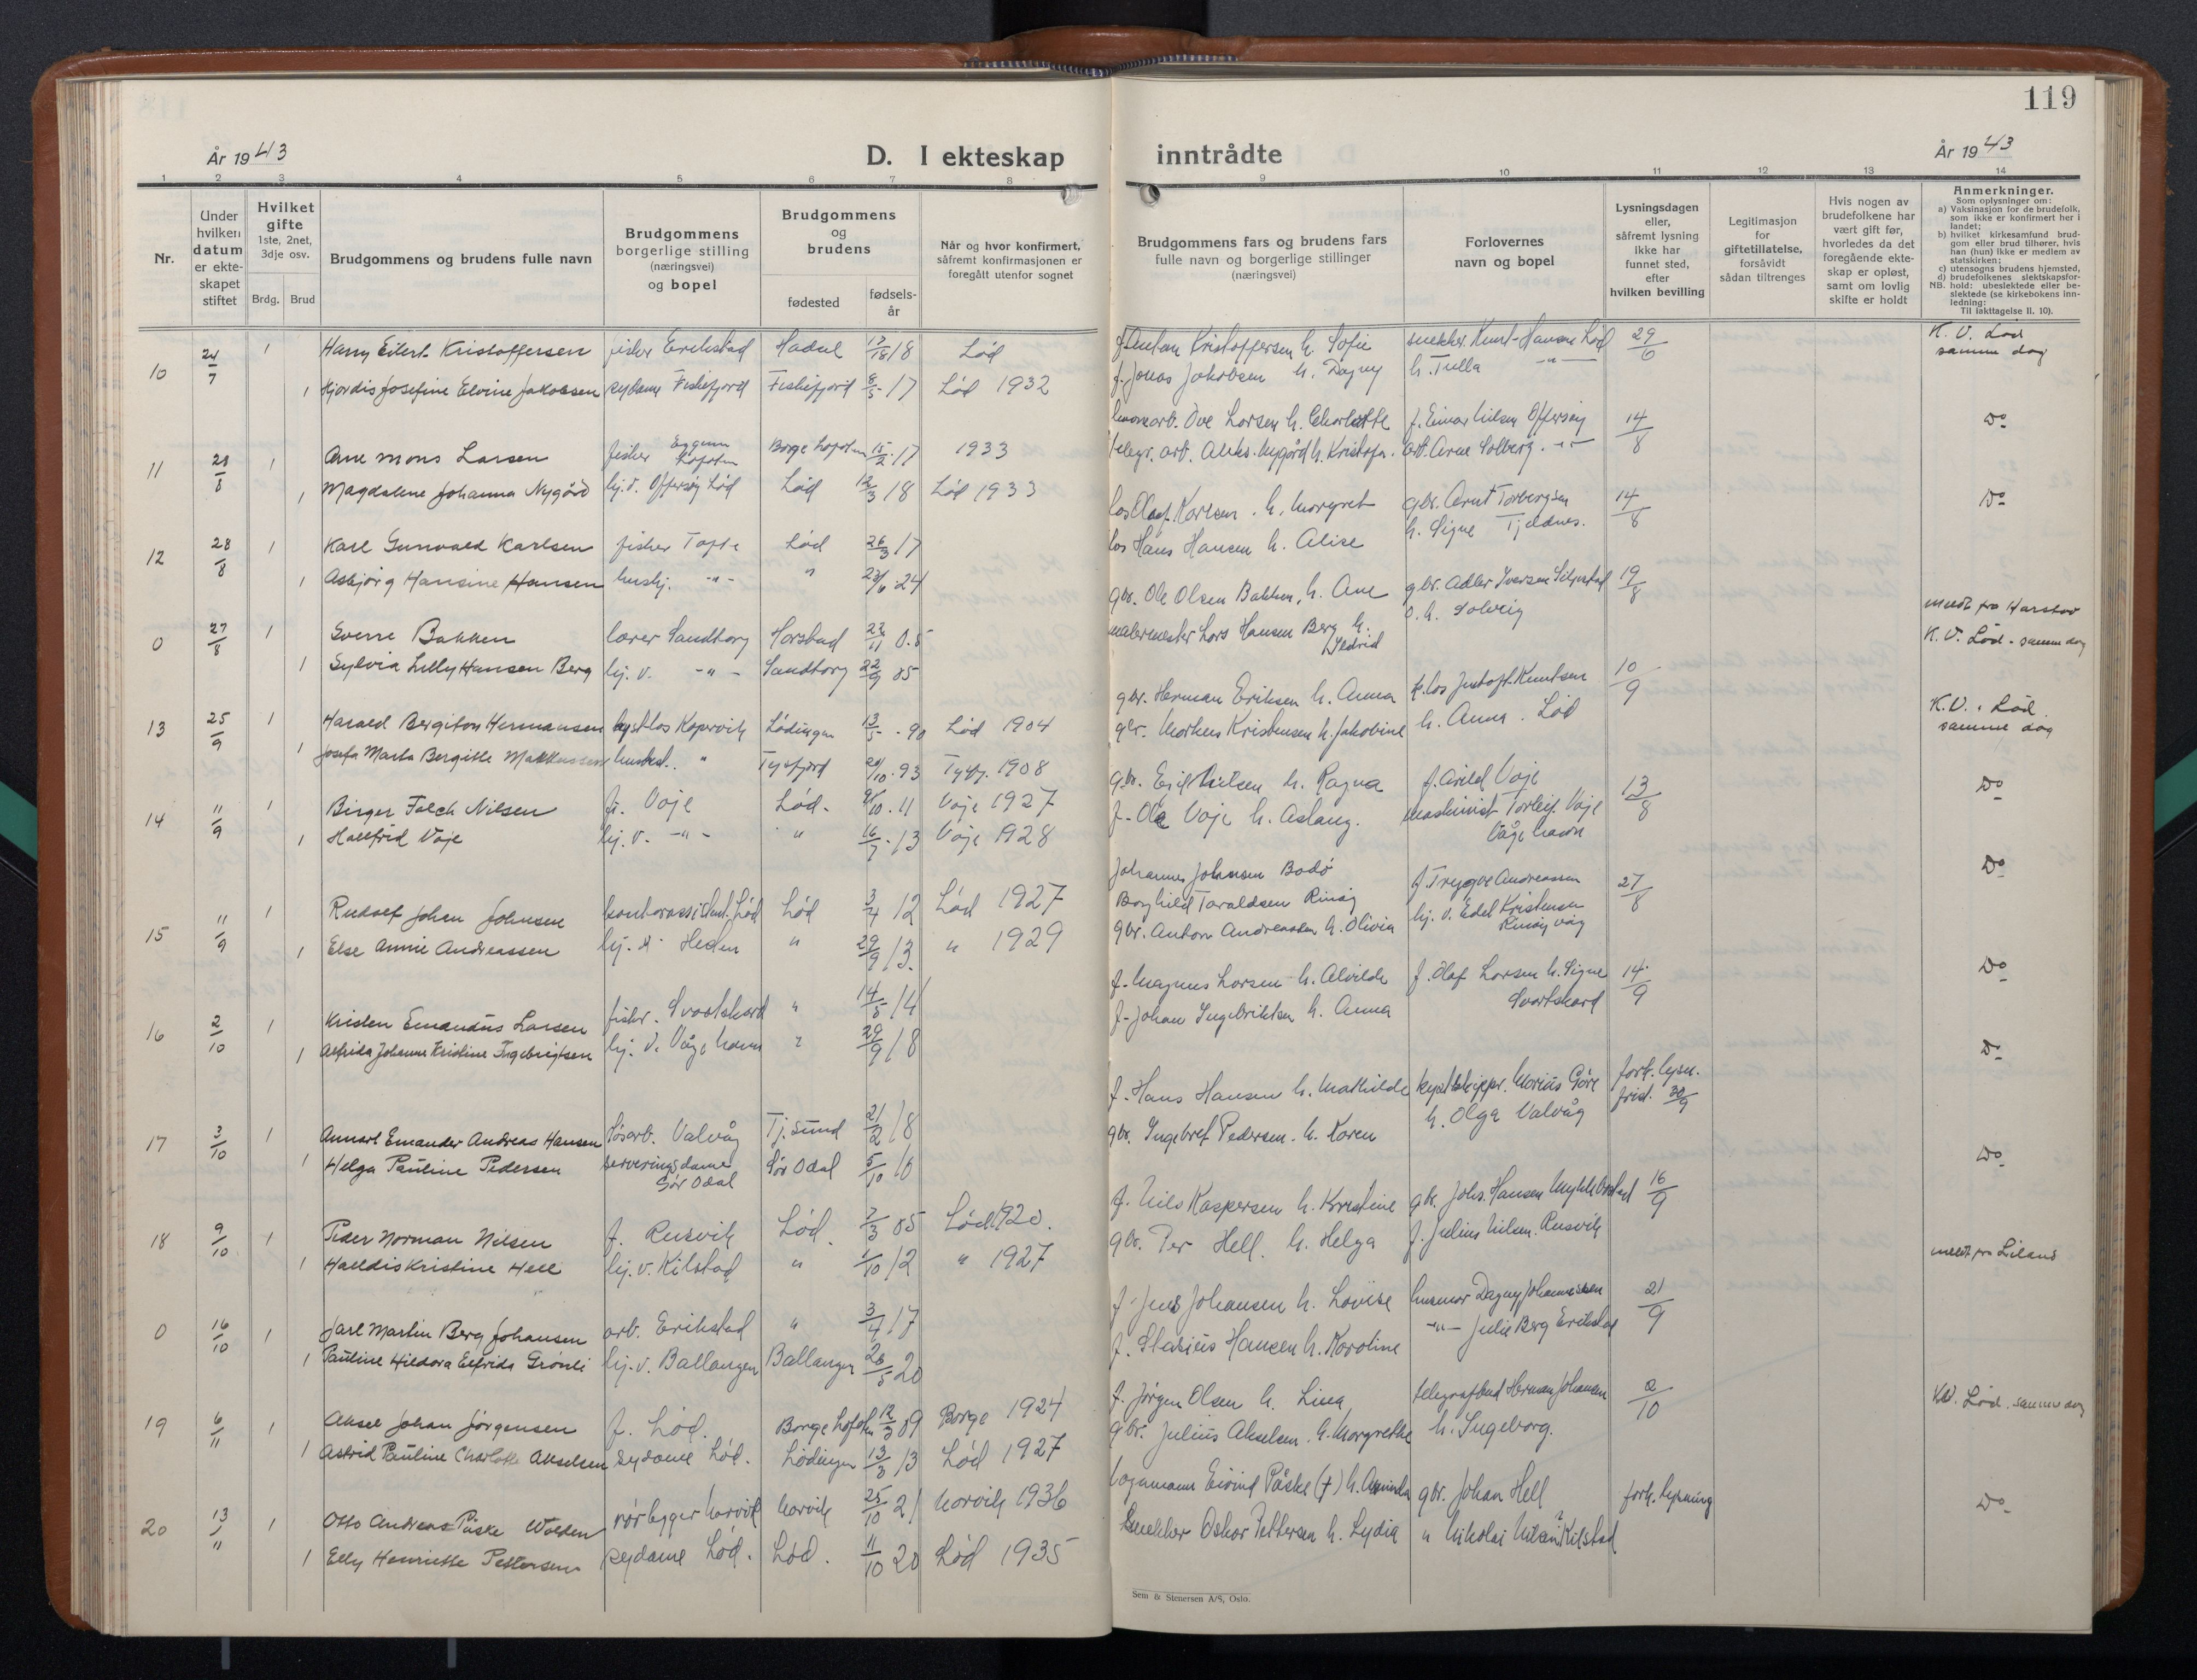 119
År 1943
D. I ekteskap
inntrådte
År 1943
1 2 3 4 5 6 7 8 9 10 11 12 13 14
Nr.
Under hvilken datum er ekte-skapet stiftet
Hvilket gifte 1ste, 2net, 3dje osv.
Brdg. Brud
Brudgommens og brudens fulle navn
Brudgommens borgerlige stilling (næringsvei) og bopel
Brudgommens og brudens
fødested
fødsels-år
Når og hvor konfirmert, såfremt konfirmasjonen er foregått utenfor sognet
Brudgommens fars og brudens fars fulle navn og borgerlige stillinger (næringsvei)
Forlovernes navn og bopel
Lysningsdagen eller, såfremt lysning ikke har funnet sted, efter hvilken bevilling
Legitimasjon for giftetillatelse, forsåvidt sådan tiltrenges
Hvis nogen av brudefolkene har vært gift før, hvorledes da det foregående ekte-skap er opløst, samt om lovlig skifte er holdt
Anmerkninger.
Som oplysninger om:
a) Vaksinasjon for de brudefolk, som ikke er konfirmert her i landet;
b) hvilket kirkesamfund brud-gom eller brud tilhører, hvis han (hun) ikke er medlem av statskirken;
c) utensogns brudens hjemsted,
d) brudefolkenes slektskapsfor-hold: ubeslektede eller be-slektede (se kirkebokens inn-ledning:
NB.
Til iakttagelse II. 10).
10 24/7 1 Harry Eilert Kristoffersen fisker Erikstad Hadsel 17/18 18 Lød f. Anton Kristoffersen h. Sofie snekker Knut Hansen Lød 29/6 K. V. Lød samme dag
1 Hjordis Josefine Elvine Jakobsen sydame Fiskefjord Fiskefjord 8/5 17 Lød 1932 f. Jonas Jakobsen h. Dagny h. Tulla -"-
11 28/8 1 Arne Mons Larsen fisker Eggum Lofoten Borge Lofoten 15/2 17 1933 Ove Larsen h. Charlotte f. Einar Nilsen Offersøy 14/8 Do
1 Magdalene Johanna Nygård hj.v. Offersøy Lød Lød 12/3 18 Lød 1933 telegr. arb. Aleks. Nygård h. Kristofa. arb. Arne Solberg -"-
12 28/8 1 Karl Gunvald Karlsen fisker Lød 26/3 17 los Olaf Karlsen h. Margret gbr. Arnt Torbergsen 14/8 Do
1 Asbjørg Hansine Hansen hushj. -"- " 23/6 24 los Hans Hansen h. Alise h. Signe Tjeldnes.
0 27/8 1 Sverre Bakken lærer Sandtorg Harstad 22/11 05 gbr. Ole Olsen Bakken, h. Ane gbr. Adler Iversen 19/8 meldt fra Harstad
1 Sylvia Lilly Hansen Berg hj. v. -"- Sandtorg 22/9 05 malermester Lars Hansen Berg h. o. h. Solveig K. V. Lød - samme dag
13 25/9 1 Harald Bergiton Hermansen kystlos Kopervik Lødingen 13/5 90 Lød 1904 gbr. Herman Eriksen h. Anna Knutsen 10/9 K.V. Lød samme dag
1 Josefa Marta Bergitte Markussen " Tysfjord 20/10 93 Tysfj. 1908 gbr. Markus Kristensen h. Jakobine h. Anna. Lød
14 11/9 1 Birger Falch Nilsen f. Voje Lød. 9/10 11 Voje 1927 gbr. Nilsen h. Ragna f. Arild Voje 13/8 Do
1 Hallfrid Voje hj. v. -"- " 16/7 13 Voje 1928 f. Ole Voje h. Aslaug. maskinist Torleif Voje Vågehavn
15 11/9 1 Rudolf Johan Johnsen kontorassistent Lød Lød 3/4 12 Lød 1927 Johannes Johansen Bodø f. Trygve Andreassen 27/8 Do
Borghild Taraldsen Rinøy hj. v. Edel Kristensen Rinøyvåg
1 Else Annie Andreassen hj. d. " 29/9 13. " 1929 gbr. Anton Andreassen h. Olivia
16 2/10 1 Kristen Emandus Larsen fisker Svartskard " 14/5 14 f. Magnus Larsen h. Alvilde f. Olaf Larsen h. Signe 14/9 Do
1 Alfrida Johanne Kristine Ingebrigtsen hj. v. Vågehavn " 29/9 18 f. Johan Ingebriktsen h. Anna Svartskard
17 3/10 1 Annart Emander Andreas Hansen løsarb. Valvåg Tj. sund 21/2 18 f. Hans Hansen h. Mathilde kystskipper Marius Gåre fork. lysn. frist. 30/9 Do
1 Helga Pauline Pedersen serveringsdame Sør Odal Sør Odal 5/10 16 gbr. Ingebret Pedersen. h. Karen h. Olga Valvåg
18 9/10 1 Peder Norman Nilsen f. Rusvik Lød. 7/3 05 Lød. 1920. f. Nils Kaspersen h. Kristine gbr. Johs. Hansen Myklebostad 16/9 Do
1 Halldis Kristine Hell hj. v. Kilstad " 1/10 12 " 1927 gbr. Per Hell. h. Helga f. Julius Nilsen. Rusvik
0 16/10 1 Jarl Martin Berg Johansen arb. Erikstad " 3/4 17 f. Jens Johansen h. Lovise husmor Dagny Johannessen 21/9 meldt fra Liland
1 Pauline Hildora Elfrida Grönli hj. v. Ballangen Ballangen 26/5 20 f. Hansen h. Karoline -"- Julie Berg Erikstad
19 6/11 1 Aksel Johan Jörgensen f. Lød. Borge Lofoten 12/3 09 Borge 1924 f. Jörgen Olsen h. Lina telegrafbud Herman Johansen 2/10 KV. Lød. samme dag
1 Astrid Pauline Charlotte Akselsen sydame Lød. Lødingen 13/3 13 Lød 1927 gbr. Julius Akselsen. h. Margrethe h. Ingeborg.
20 13/11 1 Otto Andreas Påske Wolden rørlegger Narvik Narvik 25/10 21 Narvik 1936 Eivind Påske (†) h. gbr. Johan Hell fork. lysning Do
1 Elly Henriette Pettersen sydame Lød. Lød. 11/10 20 Lød 1935 Snekker Oskar Pettersen h. Lydia " Nikolai Nilsen Kilstad
Sem & Stenersen A/S, Oslo.